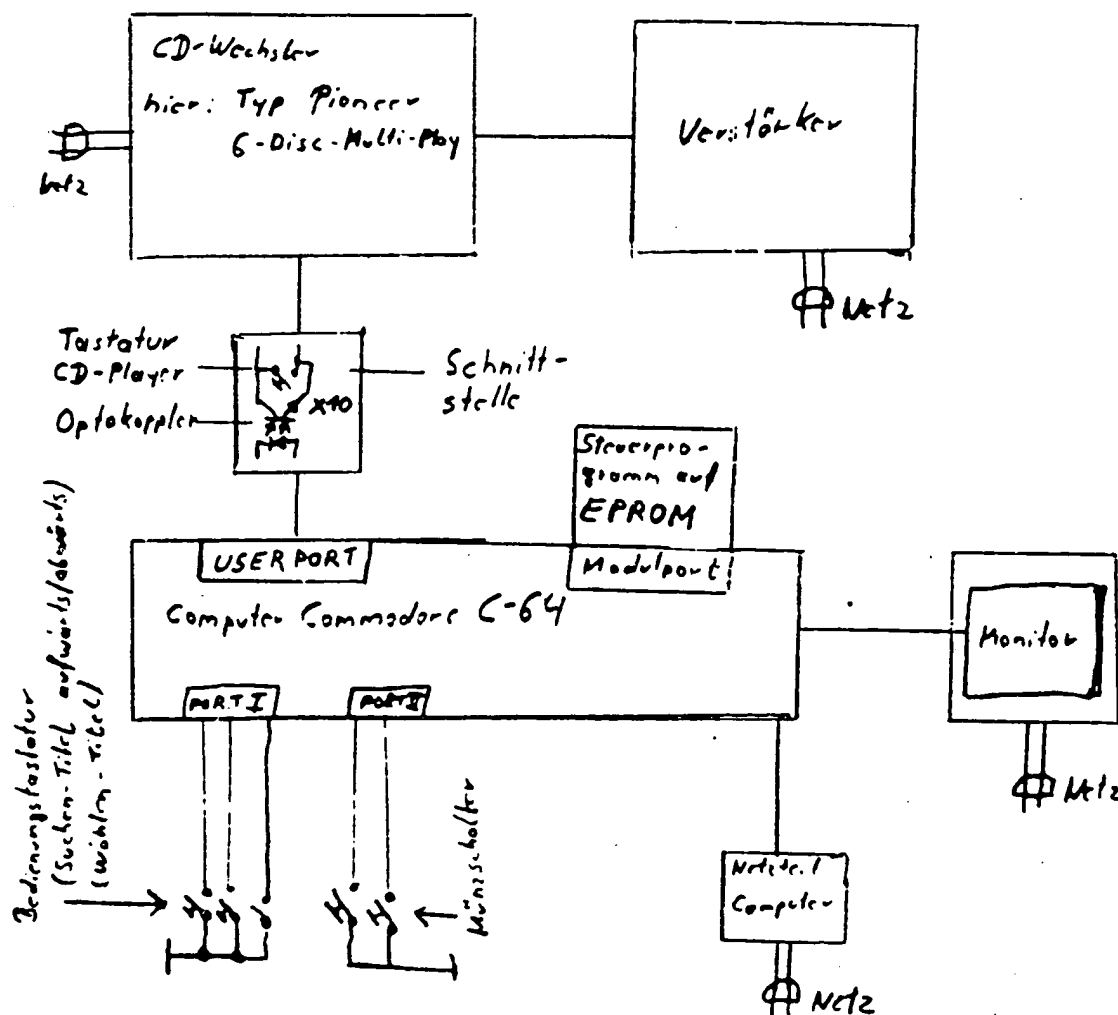 CD-Wechsler
hier: Typ Pioneer
6-Disc-Multi-Play
Netz
Verstärker
Netz
Tastatur
CD-Player
Optokoppler
X10
Schnitt-
stelle
Steuerpro-
gramm auf
EPROM
USERPORT
Modulport
Computer Commodore C-64
Monitor
Netz
PORT I
PORT II
Bedienungstastatur
(Suchen-Titel aufwärts/abwärts)
(Wählen-Titel)
Münzschalter
Netzteil
Computer
Netz